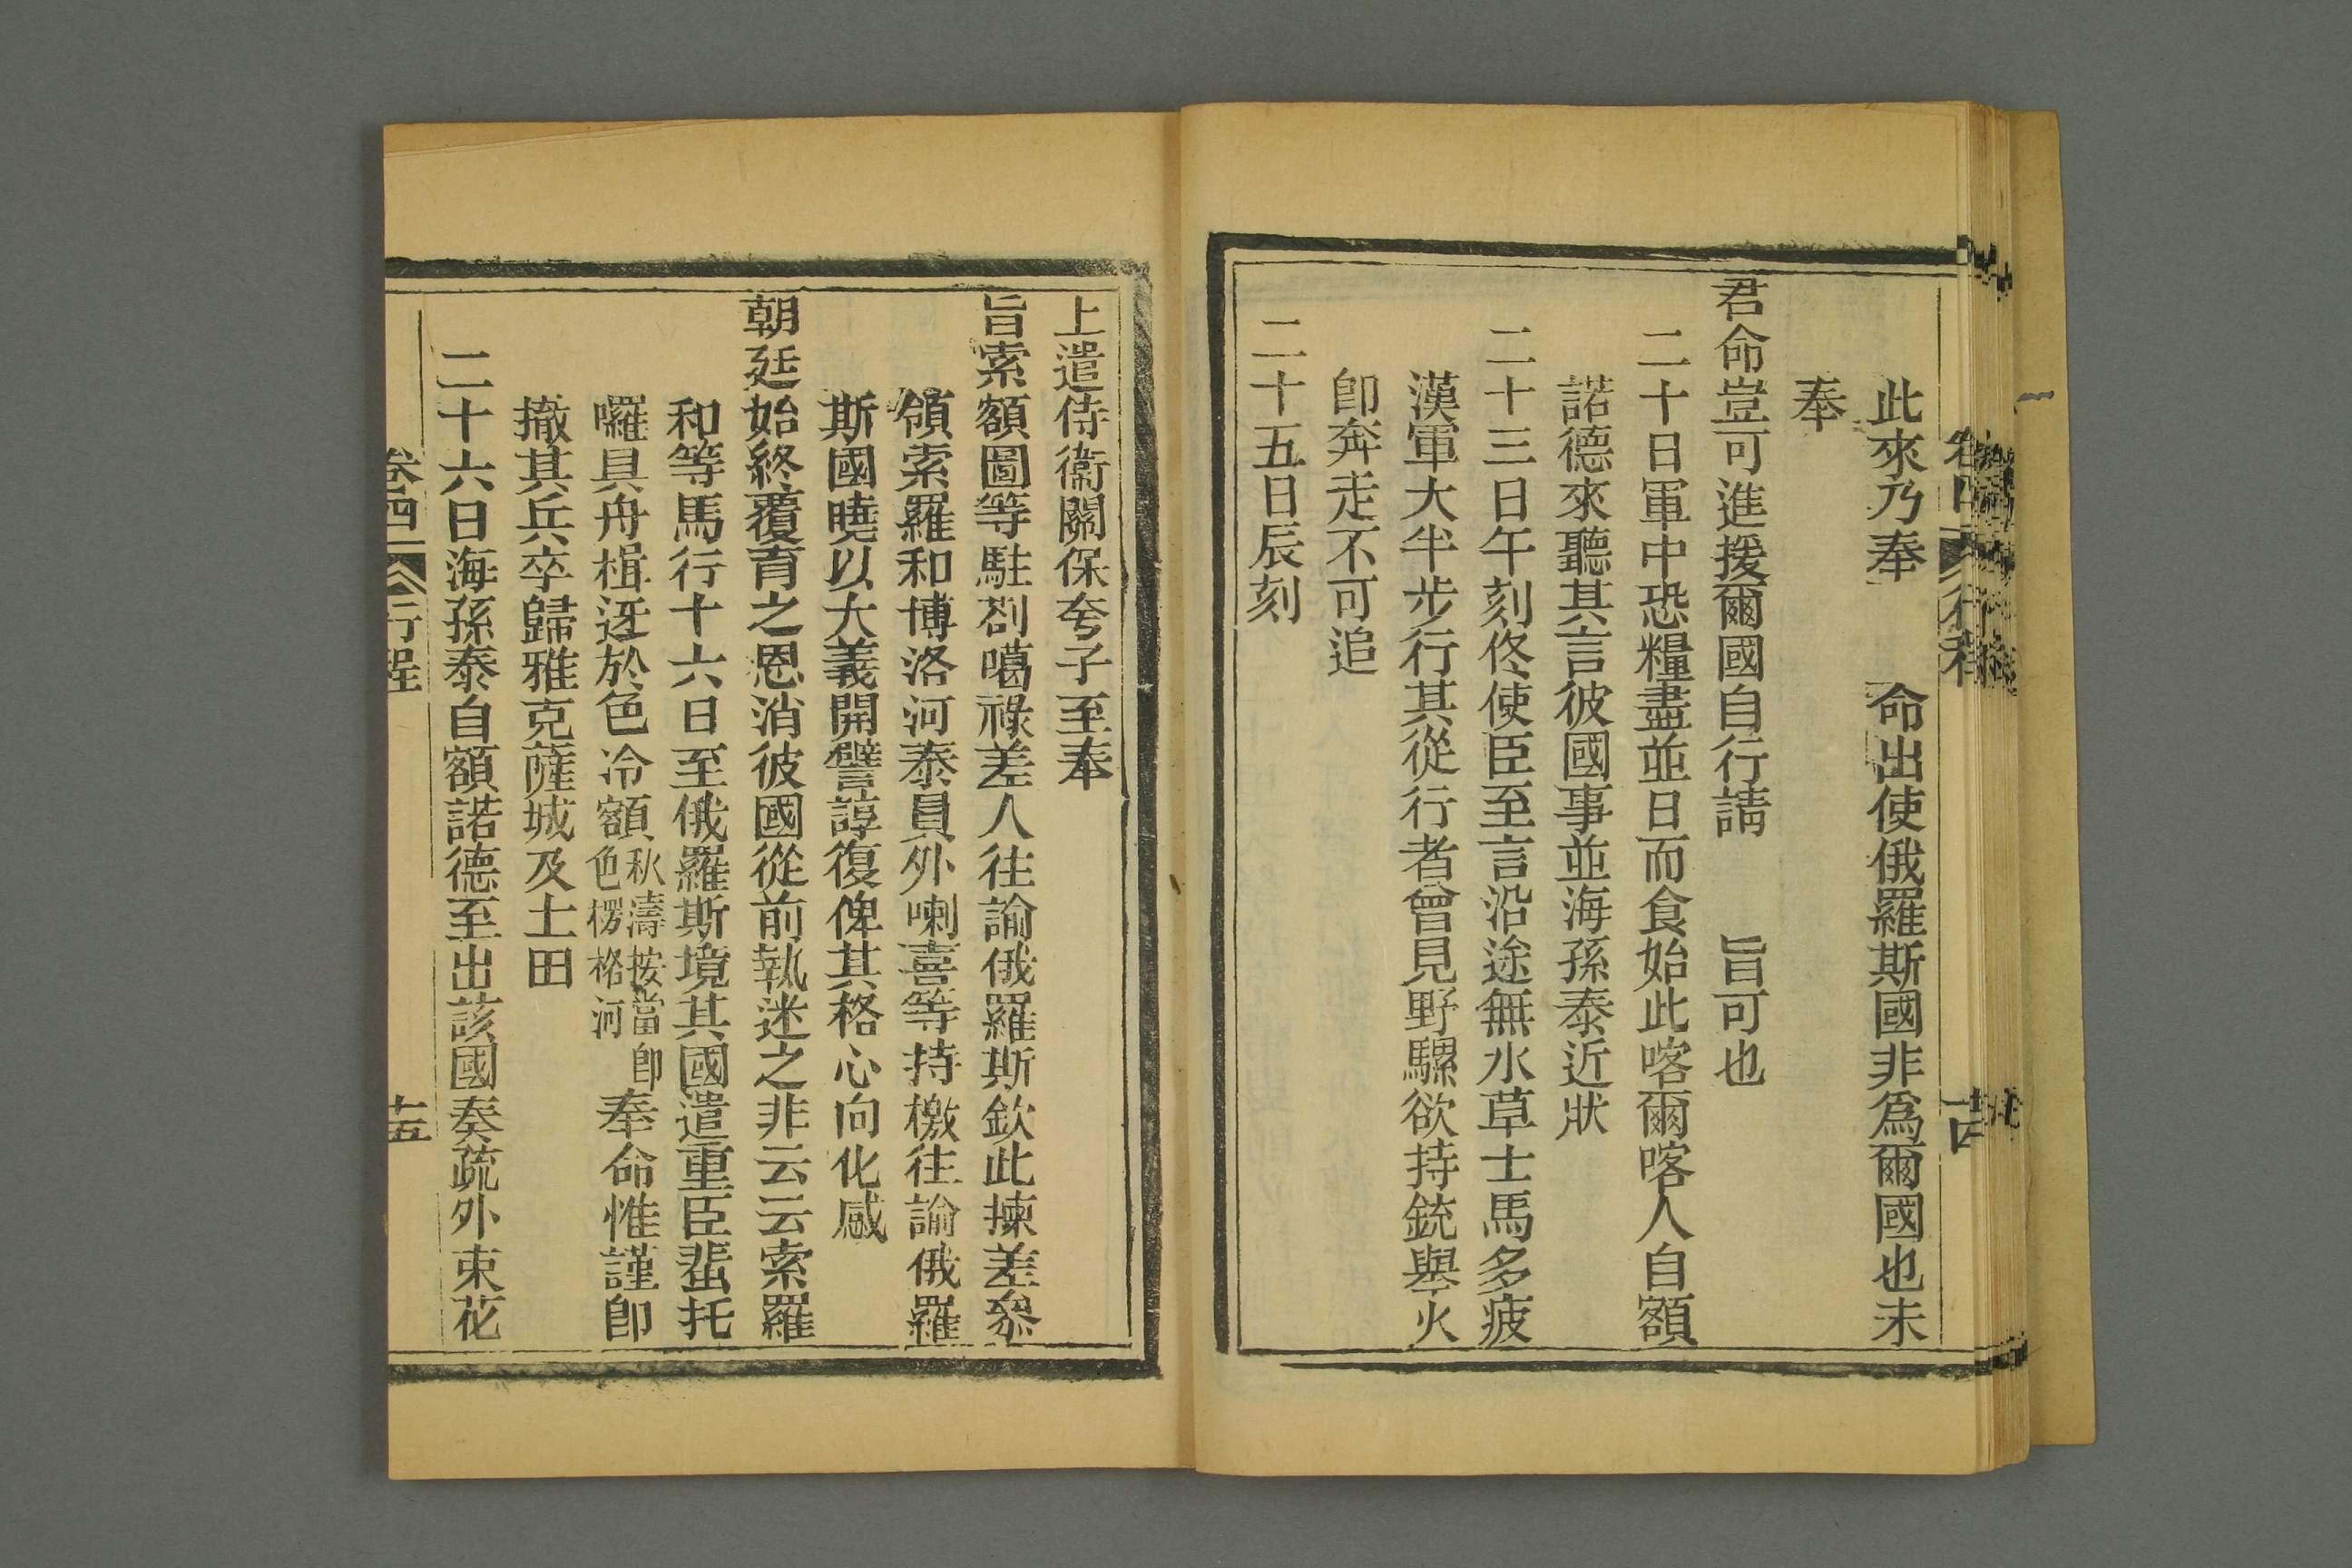 此來乃奉　命出使俄羅斯國非爲爾國也未
奉
君命豈可進援爾國自行請　旨可也
二十日軍中恐糧盡並日而食始此喀爾喀人自額
諾德來聽其言彼國事並海孫泰近狀
二十三日午刻佟使臣至言沿途無水草士馬多疲
漢軍大半步行其從行者曾見野騾欲持銃舉火
卽奔走不可追
二十五日辰刻
上遣侍衞關保夸子至奉
旨索額圖等駐剳噶祿差人往諭俄羅斯欽此揀差叅
領索羅和博洛河泰員外喇喜等持檄往諭俄羅
斯國曉以大義開譬諄復俾其格心向化感
朝廷始終覆育之恩消彼國從前執迷之非云云索羅
和等馬行十六日至俄羅斯境其國遣重臣蜚托
囉具舟楫迓於色冷額秋濤按當卽色楞格河奉命惟謹卽
撤其兵卒歸雅克薩城及土田
二十六日海孫泰自額諾德至出該國奏疏外束花
卷四　行程　十五